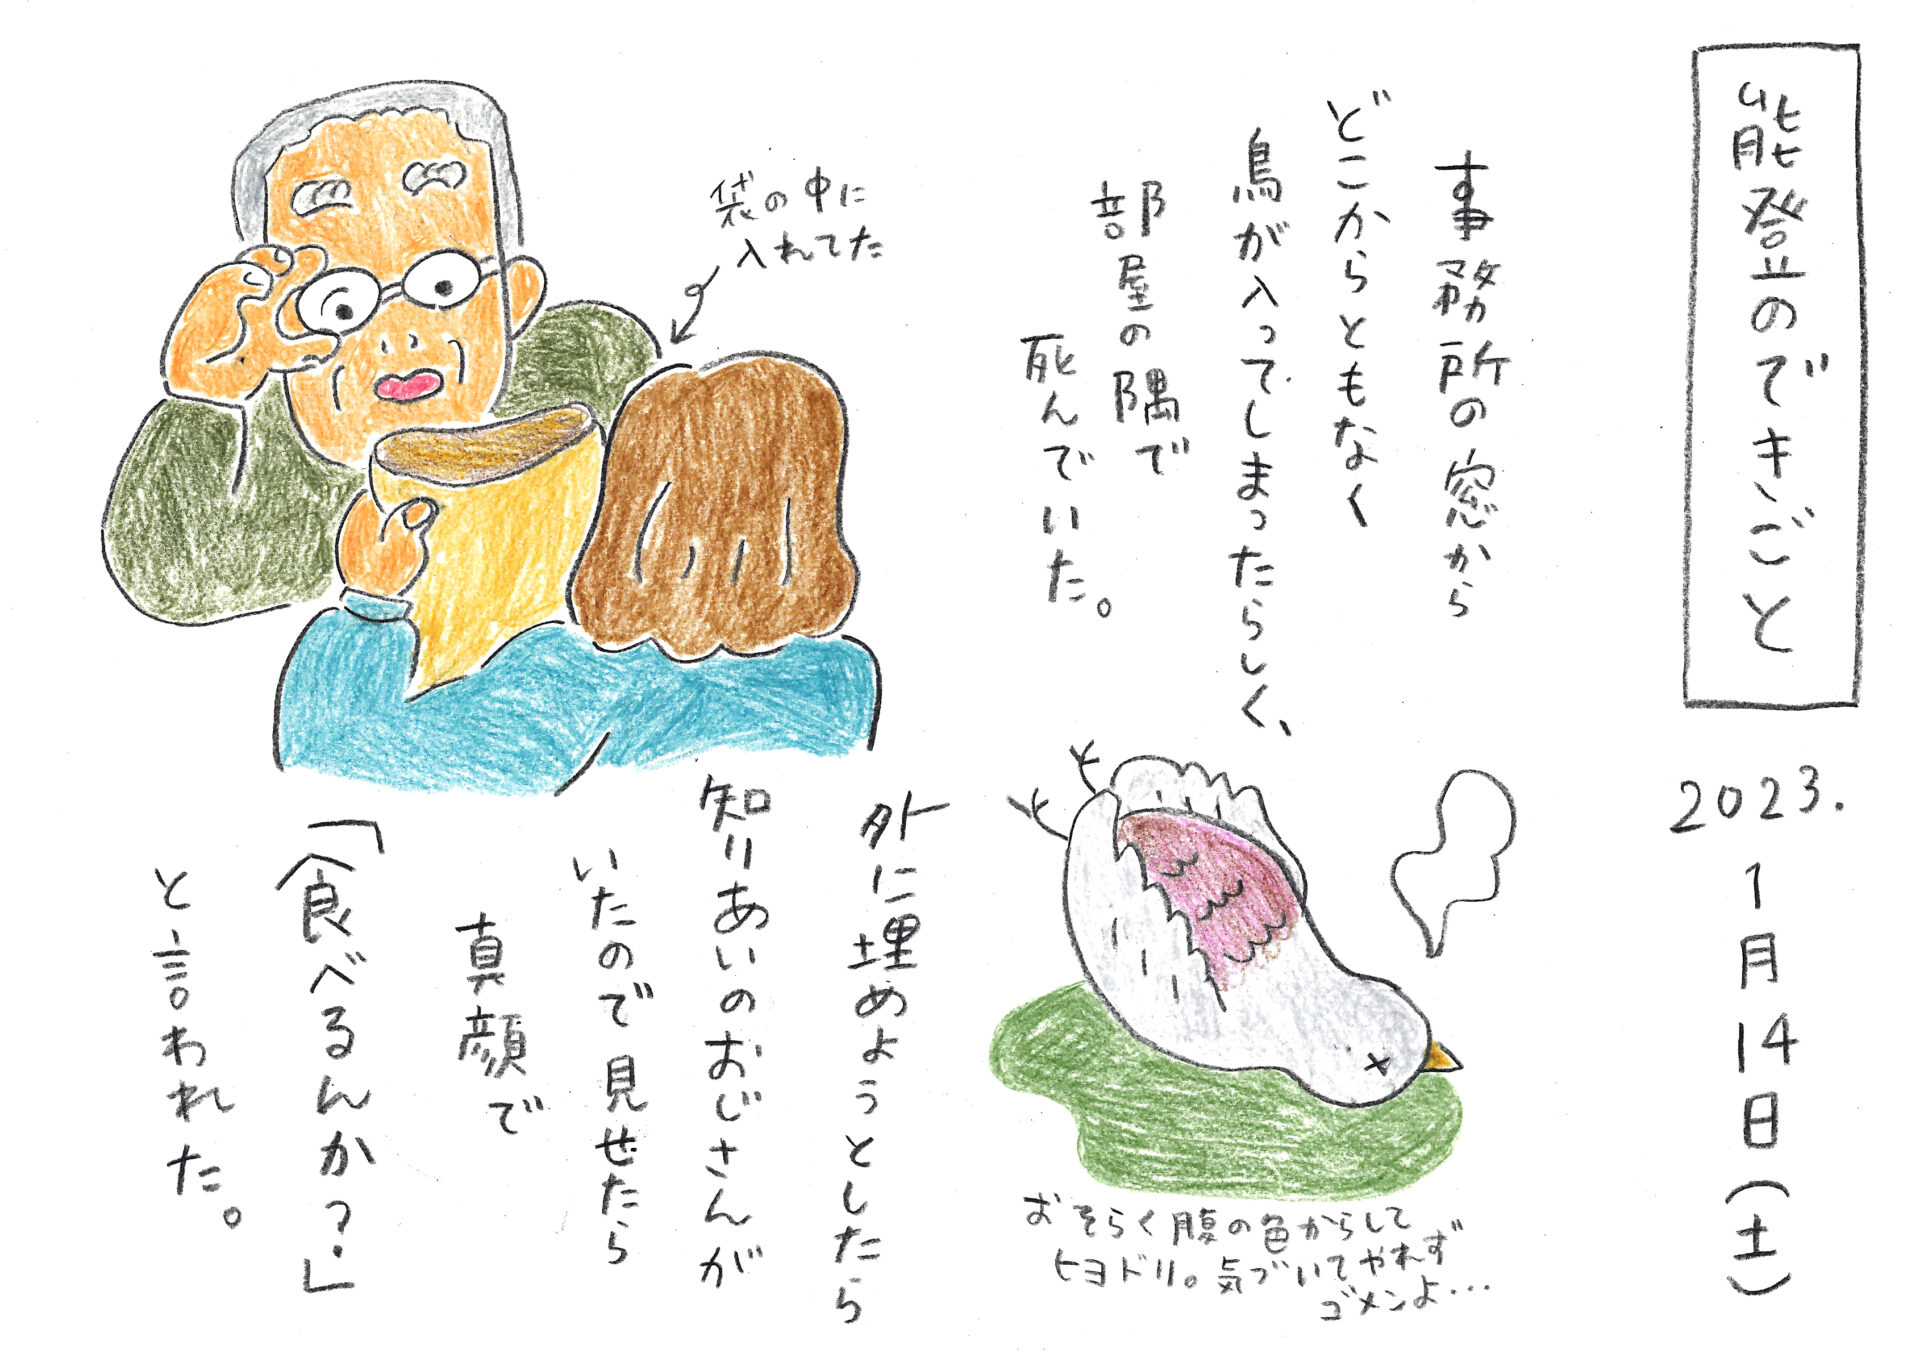 能登のできごと
2023.1月14日(土)
事務所の窓から
どこからともなく
鳥が入ってしまったらしく、
部屋の隅で
死んでいた。
おそらく腹の色からして
ヒヨドリ。気づいてやれず
ゴメンよ…
袋の中に
入れてた
外に埋めようとしたら
知りあいのおじさんが
いたので見せたら
真顔で
「食べるんか？」
と言われた。